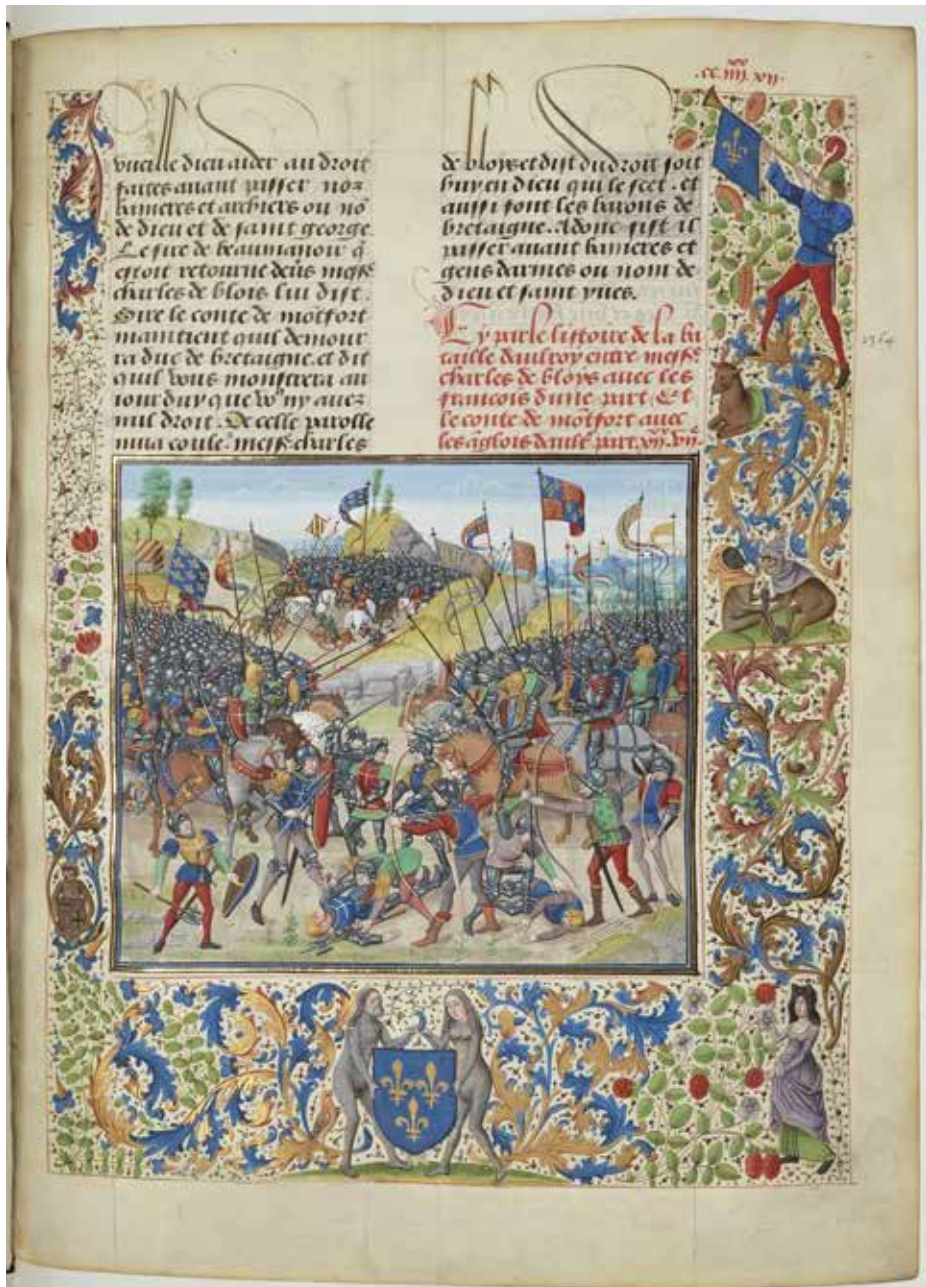 vueille dieu aider au droit
faites avant passer noz
banieres et archiers ou nō
de dieu et de saint george
Le sire de beaumanoir q̄
estoit retourne deūs messʳᵉ
charles de blois lui dist.
Sire le conte de mōtfort
maintient quil demour
ra duc de bretaigne. et dit
quil vous monstrera au
iour duy que voꝰ ny avez
nul droit. De celle parolle
mua coulʳ messʳᵉ charles
de bloys et dist du droit soit
huy en dieu qui le scet. et
aussi font les barons de
bretaigne. Adonc fist il
passer avant banieres et
gens darmes ou nom de
dieu et saint yues.
Cy parle listoire de la ba
taille daulroy entre messʳᵉ
charles de bloys avec les
francois dune part Et
le conte de mōtfort avec
les āglois daultʳᵉ part.
1364